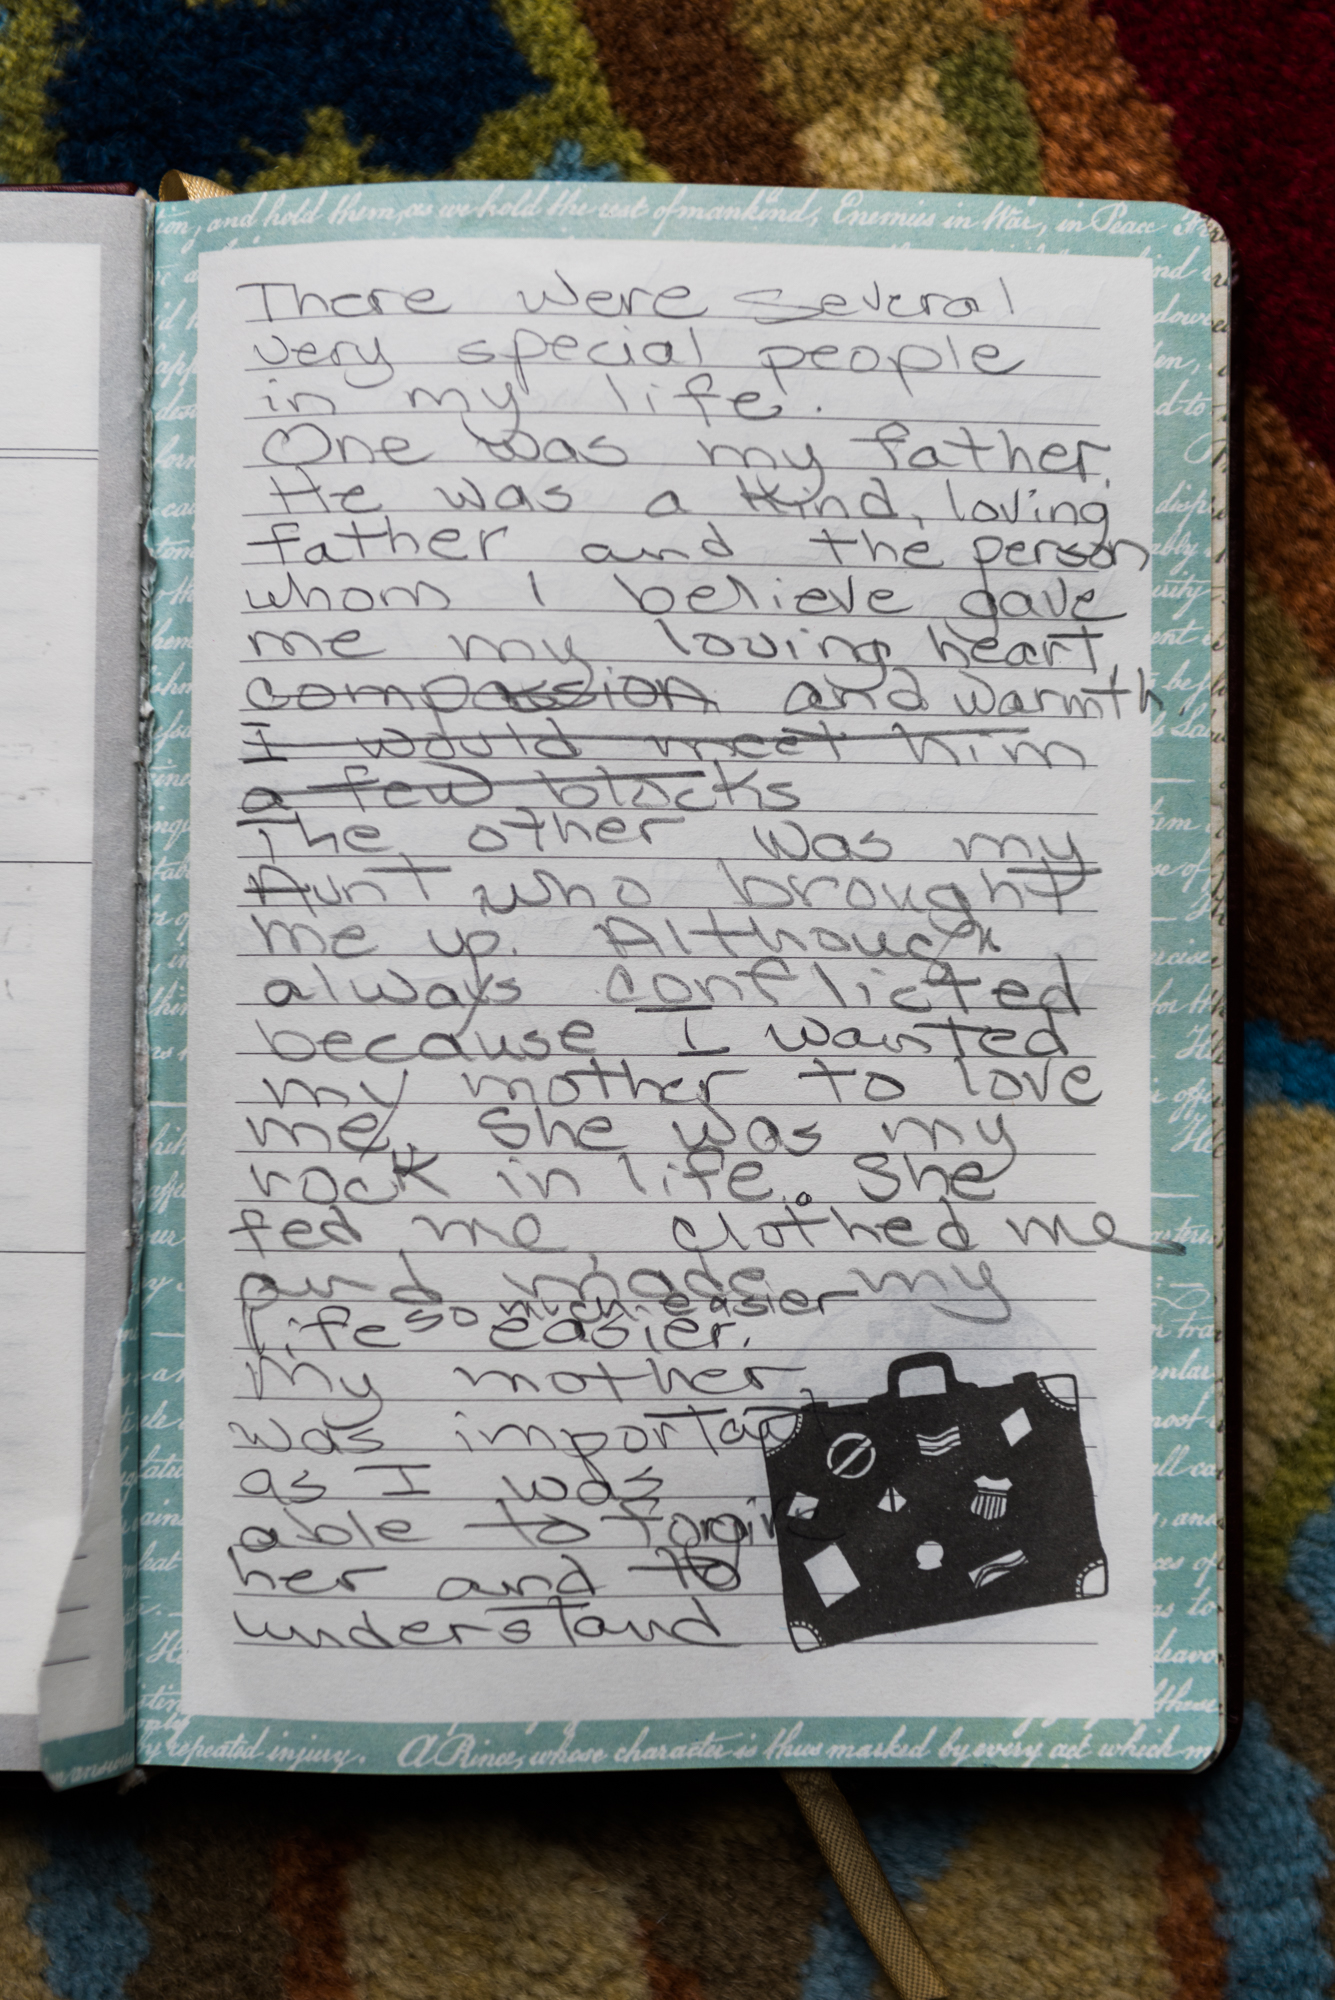 ion, and hold them, as we hold the rest of mankind, Enemies in War, in Peace
There were several
very special people
in my life.
One was my father.
He was a kind, loving
father and the person
whom I believe gave
me my loving heart,
compassion and warmth.
I would meet him
a few blocks
The other was my
Aunt who brought
me up. Although
always conflicted
because I wanted
my mother to love
me, she was my
rock in life. She
fed me, clothed me
and made my
much easier
life so easier.
My mother,
was important
as I was
able to forgive
her and to
understand
repeated injury. A Prince, whose character is thus marked by every act which m